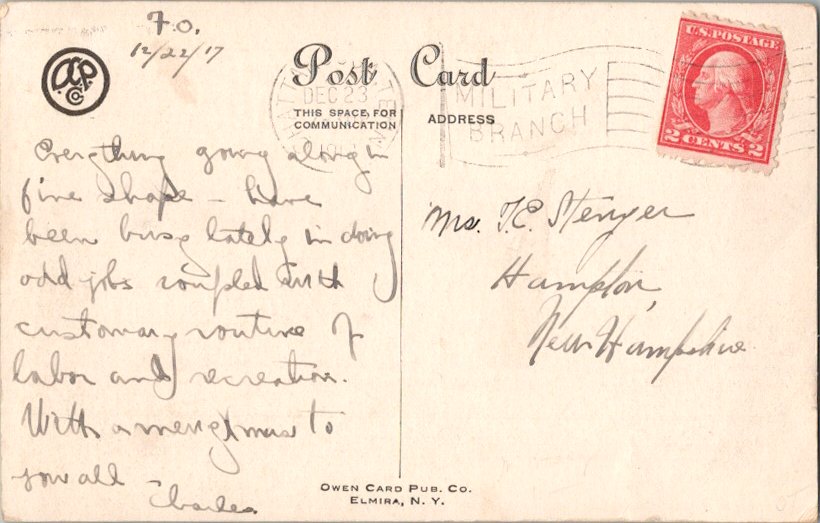 F.O.
12/22/17
Post Card
THIS SPACE FOR
COMMUNICATION
ADDRESS
DEC 23
MILITARY
BRANCH
U.S. POSTAGE
2 CENTS 2
Everything going along in
fine shape – have
been busy lately in doing
odd jobs coupled with
customary routine of
labor and recreation.
With a merry Xmas to
you all
Charles
Hampton,
New Hampshire
OWEN CARD PUB. CO.
ELMIRA, N. Y.